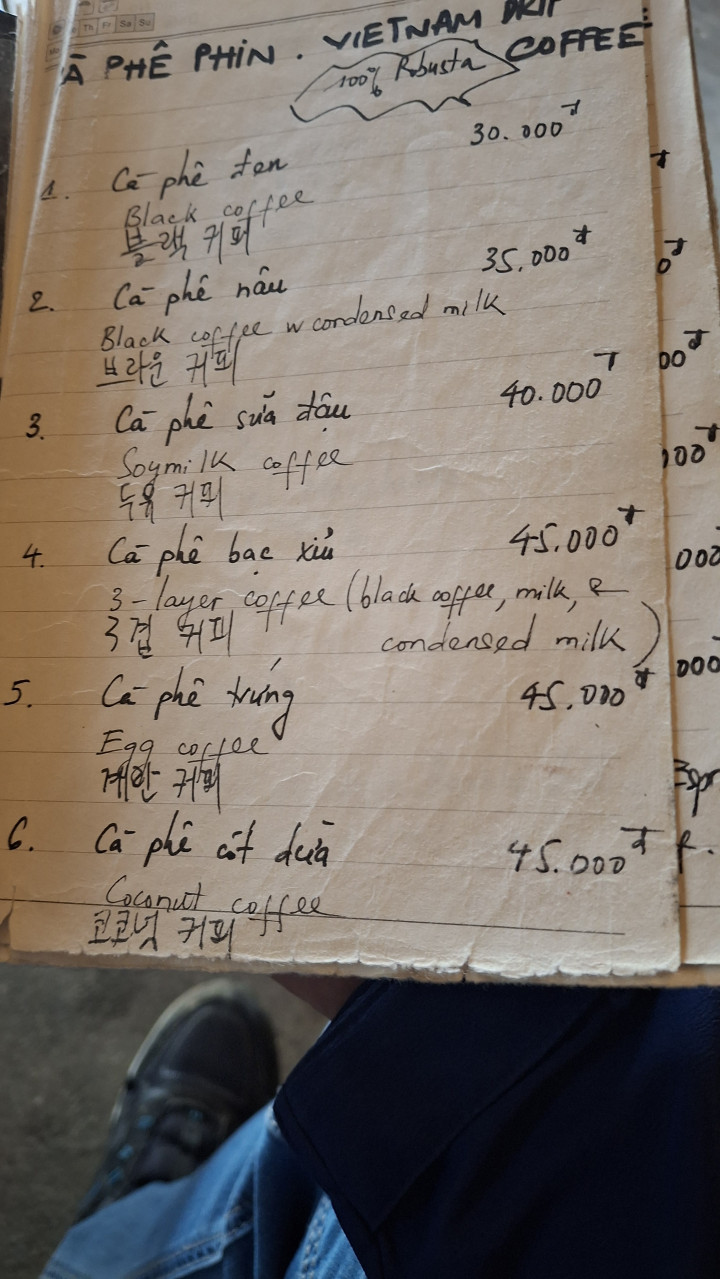 Th Fr Sa Su
À PHÊ PHIN . VIETNAM DRIP COFFEE
100% Robusta
1. Cà phê đen 30.000đ
Black coffee
블랙 커피
2. Cà phê nâu 35.000đ
Black coffee w condensed milk
브라운 커피
3. Cà phê sữa đậu 40.000đ
Soymilk coffee
두유 커피
4. Cà phê bạc xỉu 45.000đ
3-layer coffee (black coffee, milk, &
condensed milk)
3겹 커피
5. Cà phê trứng 45.000đ
Egg coffee
계란 커피
6. Cà phê cốt dừa 45.000đ
Coconut coffee
코코넛 커피